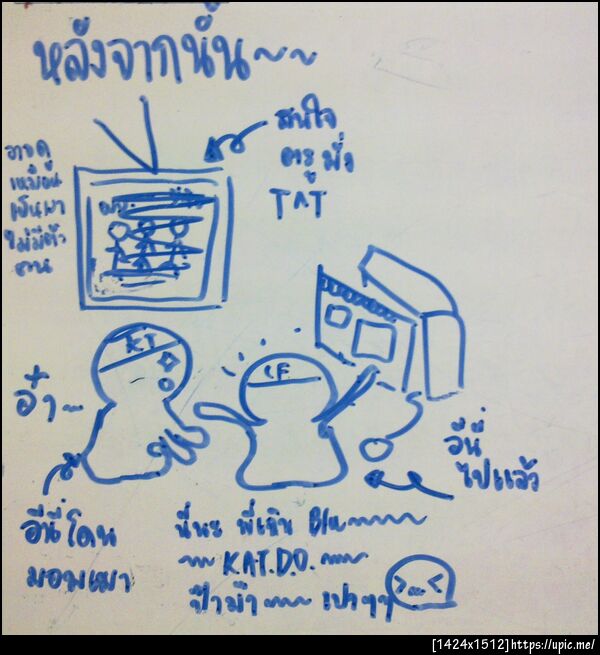 หลังจากนั้น~~
สนใจ
ครูมั่ง
T^T
วาดดู
เหมือน
ไม่มีตัว
KT
LF
อ๋า~
อีนี่
ไปแล้ว
อีนี่โดน
มอมเมา
นี่นะ พี่เห็น Blu~~~~
~~ K.A.T.D.O. ~~~
ป๊าม๊า~~~ เปาๆๆ
>...<
[1424x1512]https://upic.me/